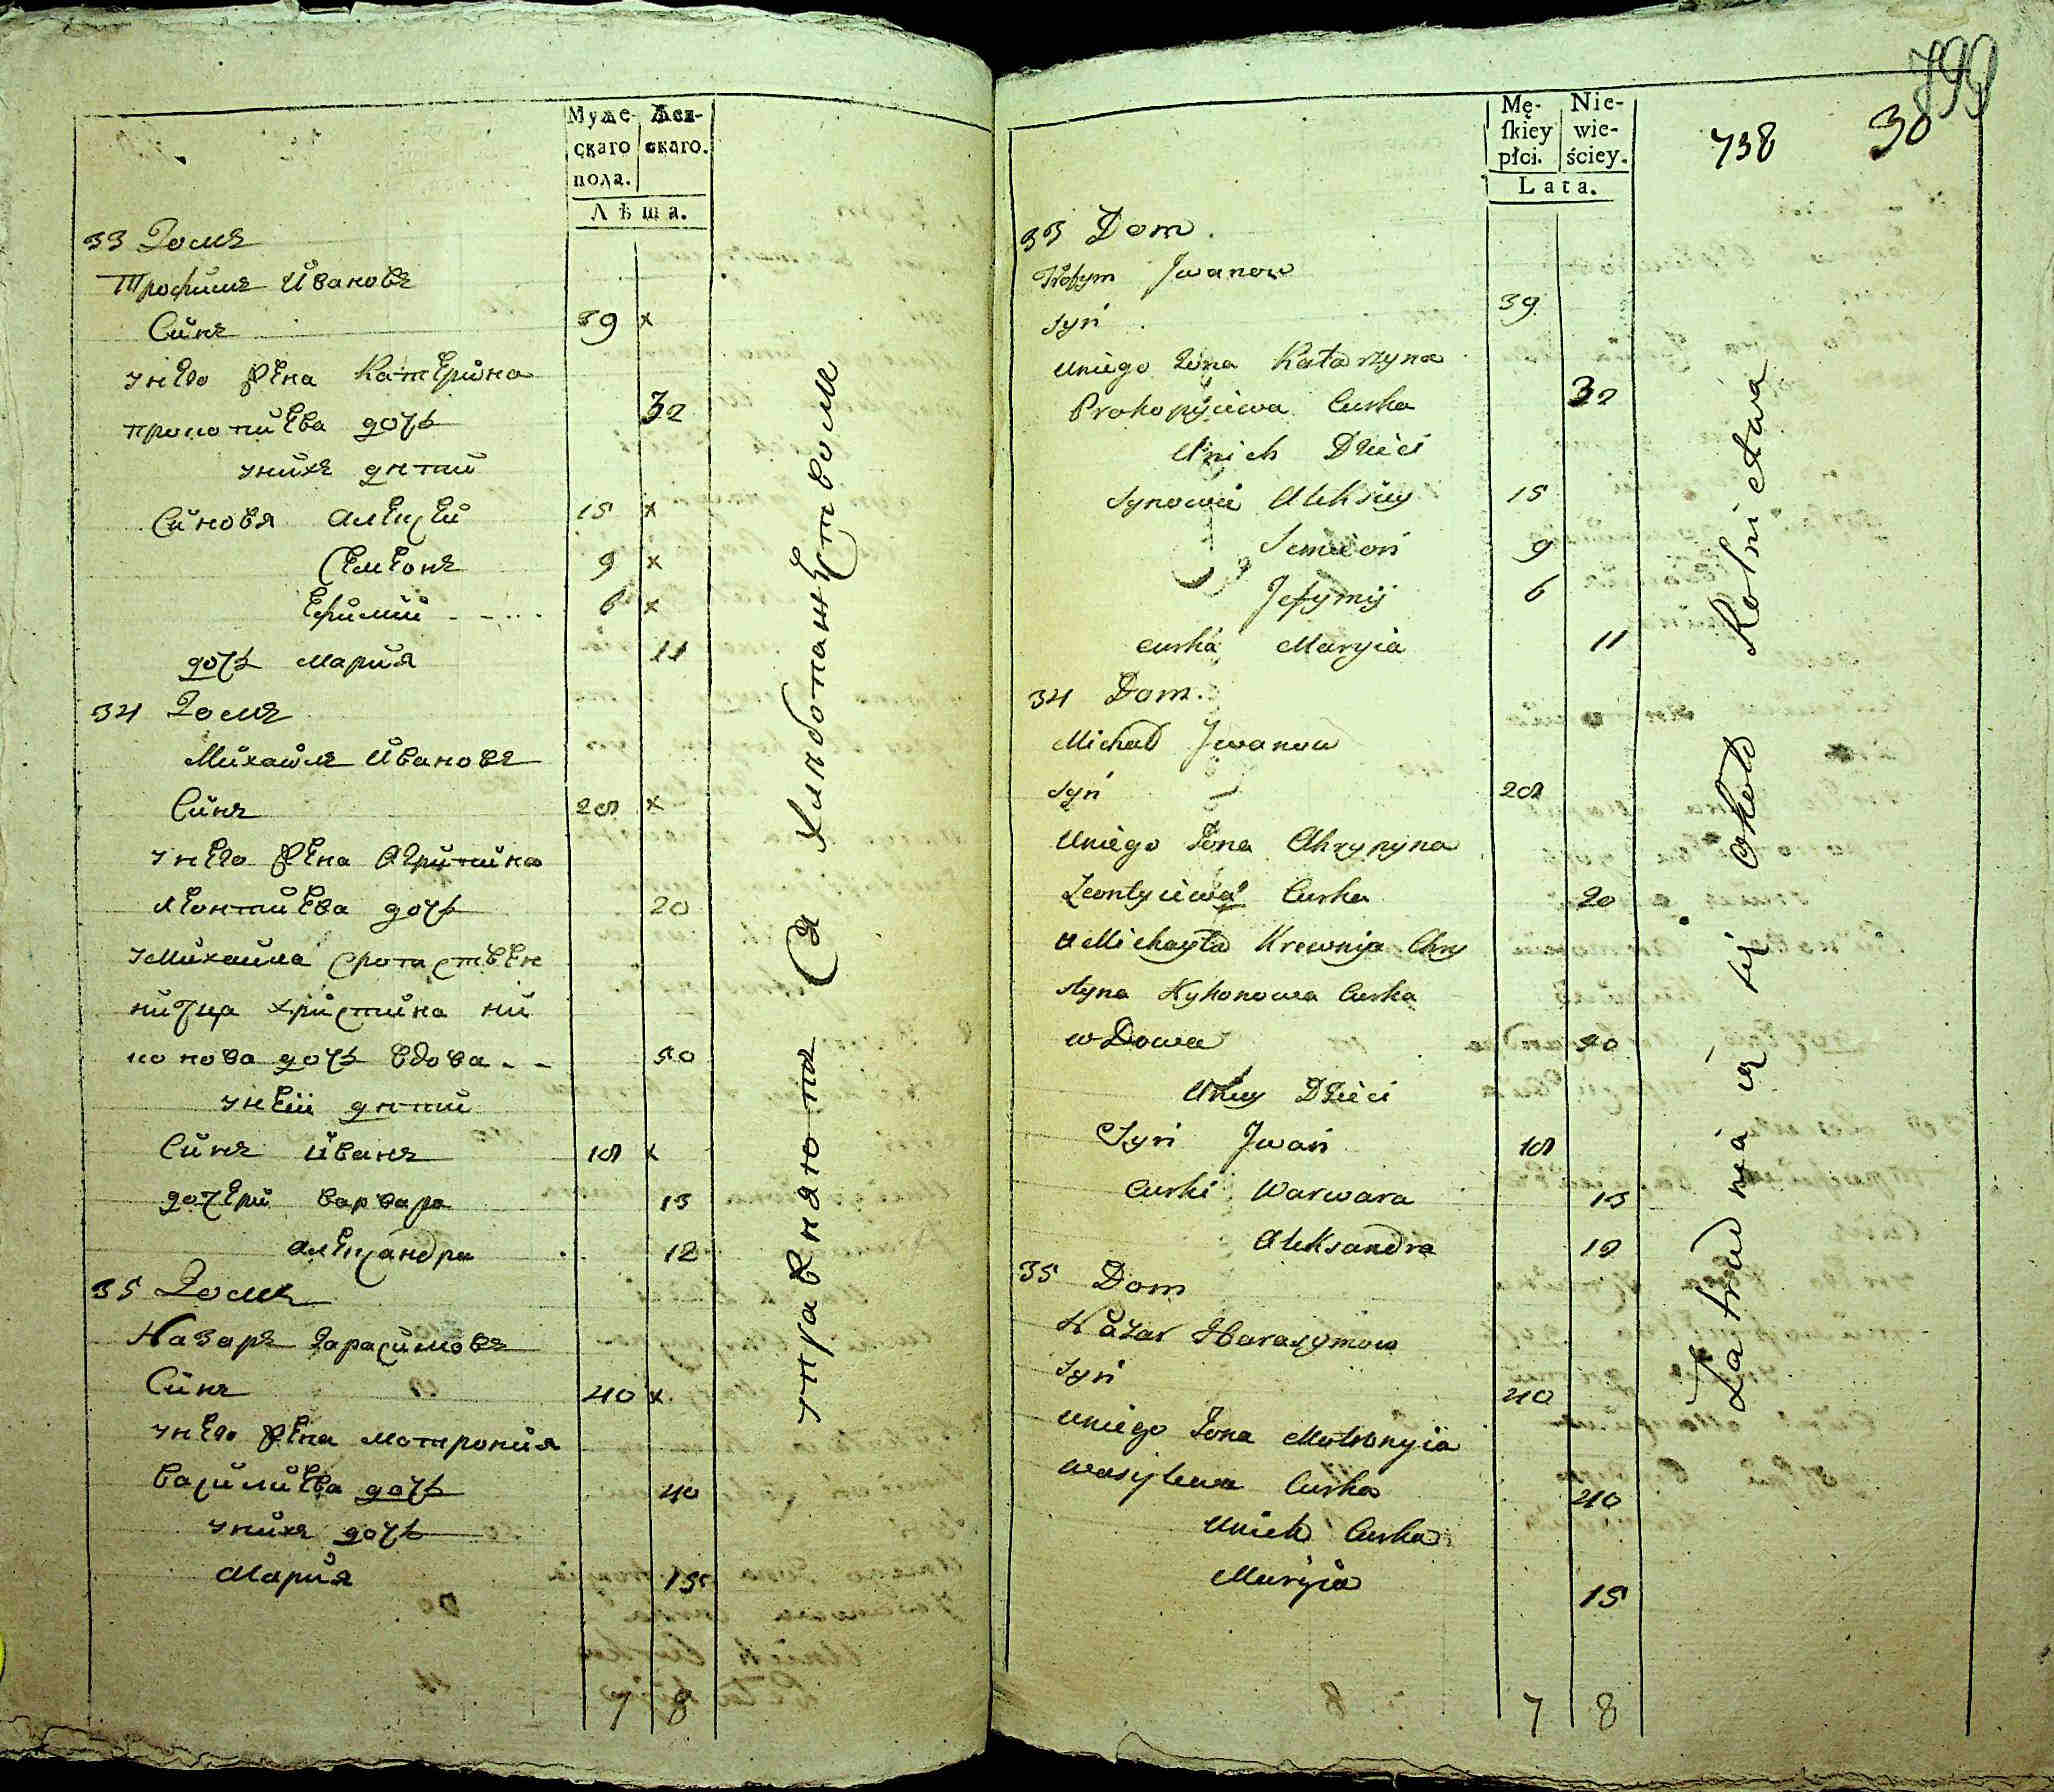 Муже-
скаго
пола.
Жен-
скаго.
Лѣта.
33 Домъ
Трофимъ Ивановъ
Синъ 39 x
унего жена Катерина
прокопиева дочь 32
унихъ дети
Синовя Алексей 15 x
Семионъ 9 x
Ефимий 6 x
дочь Мария 11
34 Домъ
Михаилъ Ивановъ
Синъ 28 x
унего жена Агрипина
Леонтиева дочь 20
уМихаила сродствен
ница христина ни
конова дочь вдова 50
унеи дети
Синъ Иванъ 18 x
дочери варвара 13
Александра 12
35 Домъ
Назаръ Гарасимовъ
Синъ 40 x
унего жена Мотрония
василиева дочь 40
унихъ дочь
Мария 15
7 8
упражняются хлебопашеством
799
738 30
Mę-
ſkiey
płci.
Nie-
wie-
ściey.
Lata.
33 Dom.
Trofym Jwanow
syn 39
uniego Żona Katarzyna
Prokopyiewa Curka 32
Unich Dzieci
Synowie Aleksiey 15
Semeon 9
Jefymij 6
curka Maryia 11
34 Dom.
Michał Jwanow
syn 28
Uniego Żona Ahrypyna
Leontyiewa Curka 20
u Michayła Krewnja Chry
styna Nykonowa Curka
wDowa 50
Uniey Dzieci
Syn Jwan 18
Curki Warwara 13
Aleksandra 12
35 Dom
Nazar Harasymow
syn 40
uniego Żona Motronyia
wasylewa Curka 40
Unich Curka
Maryia 15
7 8
Zatrudniaią się około Rolnictwa